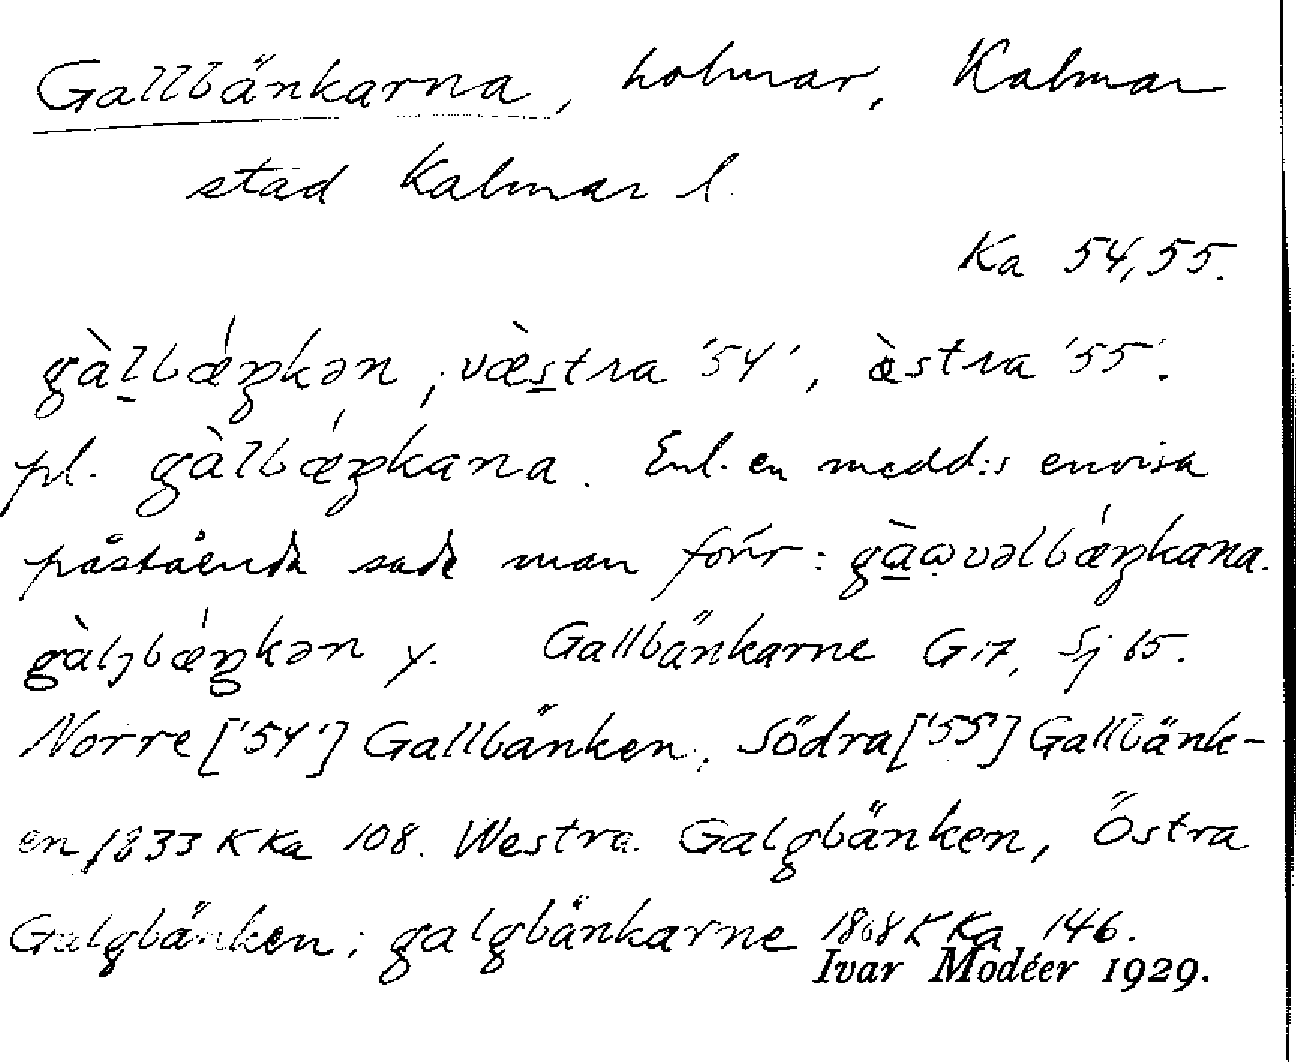 Gallbänkarna, holmar, Kalmar
stad Kalmar l.
Ka 54,55.
gàlbǽŋkən; væ̀stra '54', æ̀stra '55'.
pl. gàlbǽŋkana. Enl. en medd:s envisa
påstående sade man förr: gàωvəlbǽŋkana.
gàljbǽŋkən y. Gallbänkarne G17, Sj 65.
Norre ['54'] Gallbänken; Södra ['55'] Gallbänk-
en 1833 K Ka 108. Westra Galgbänken, Östra
Galgbänken; galgbänkarne 1868 K Ka 146.
Ivar Modéer 1929.